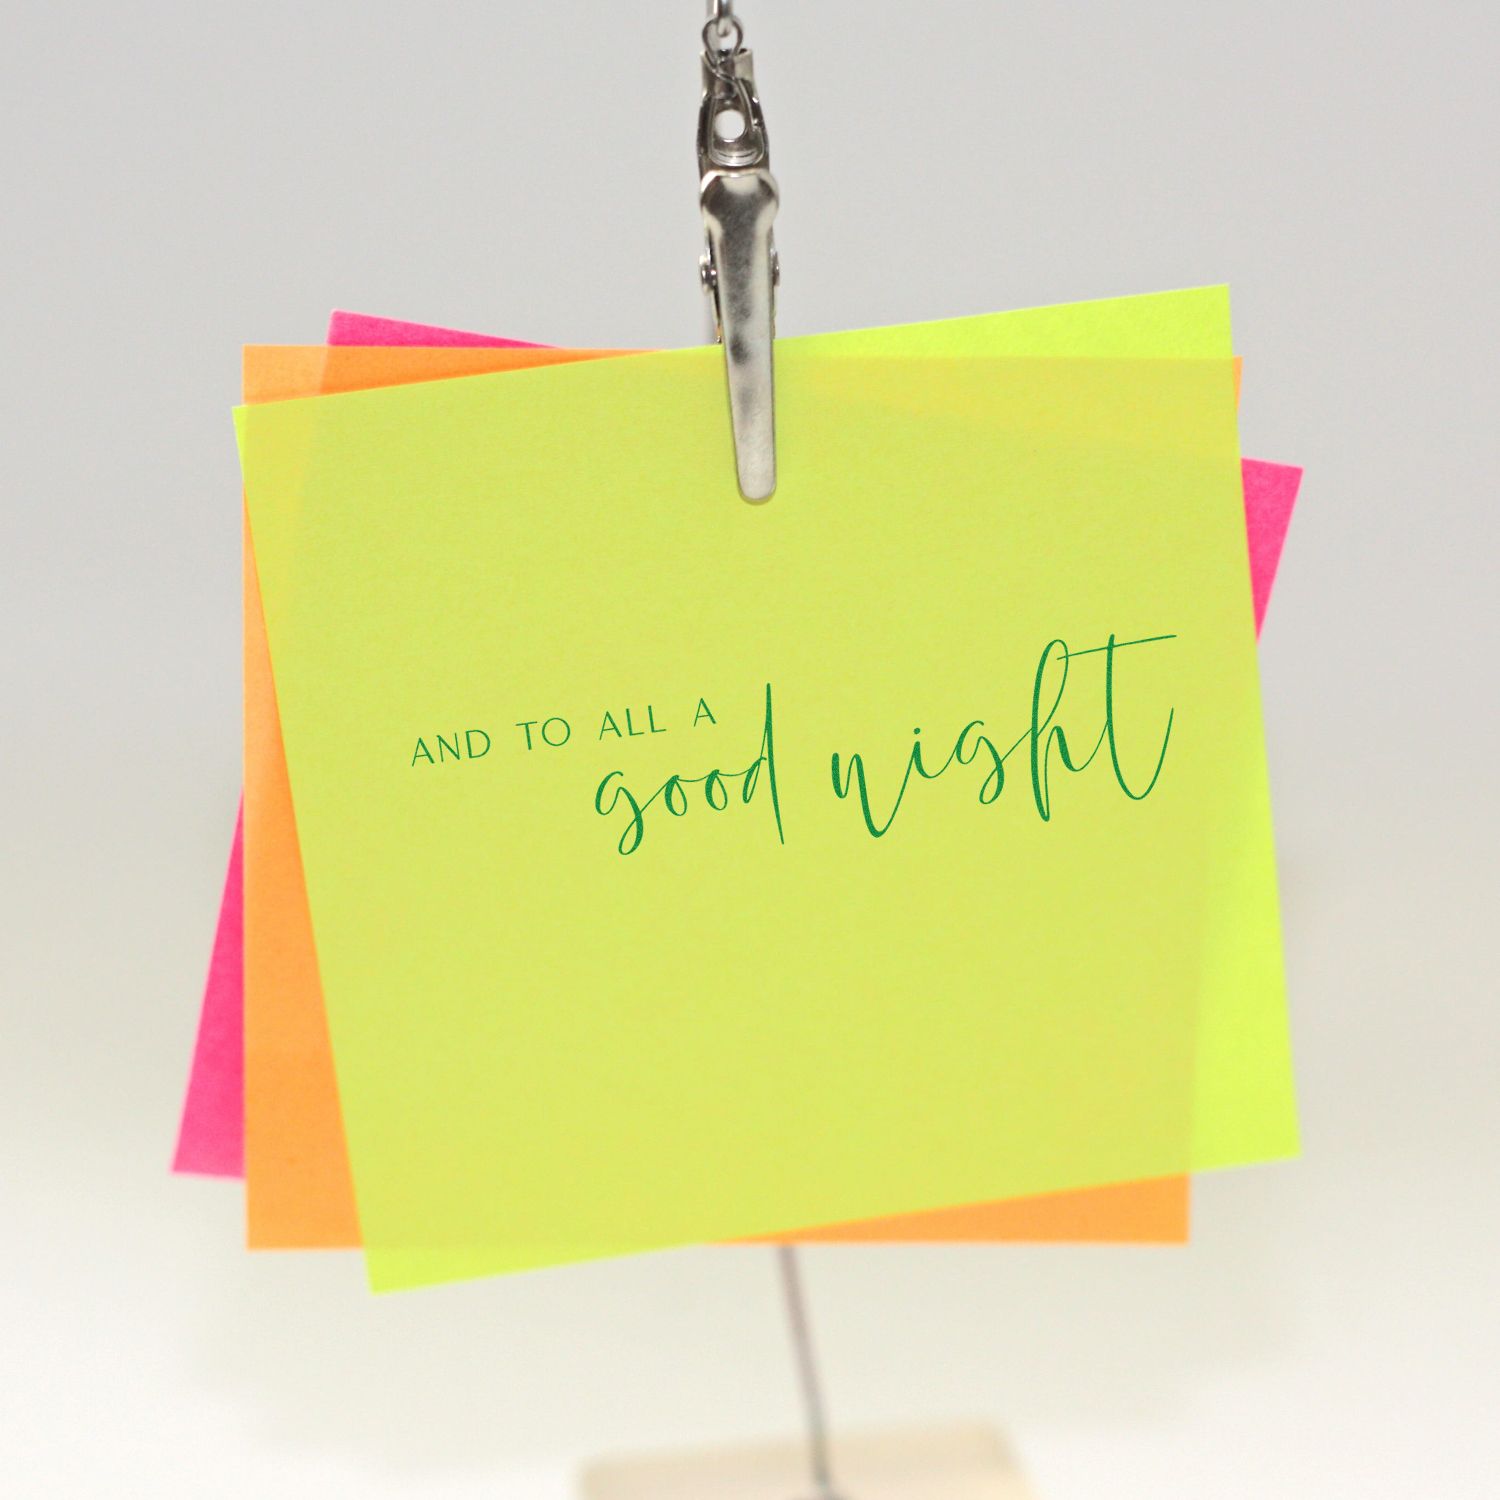 AND TO ALL A
good night